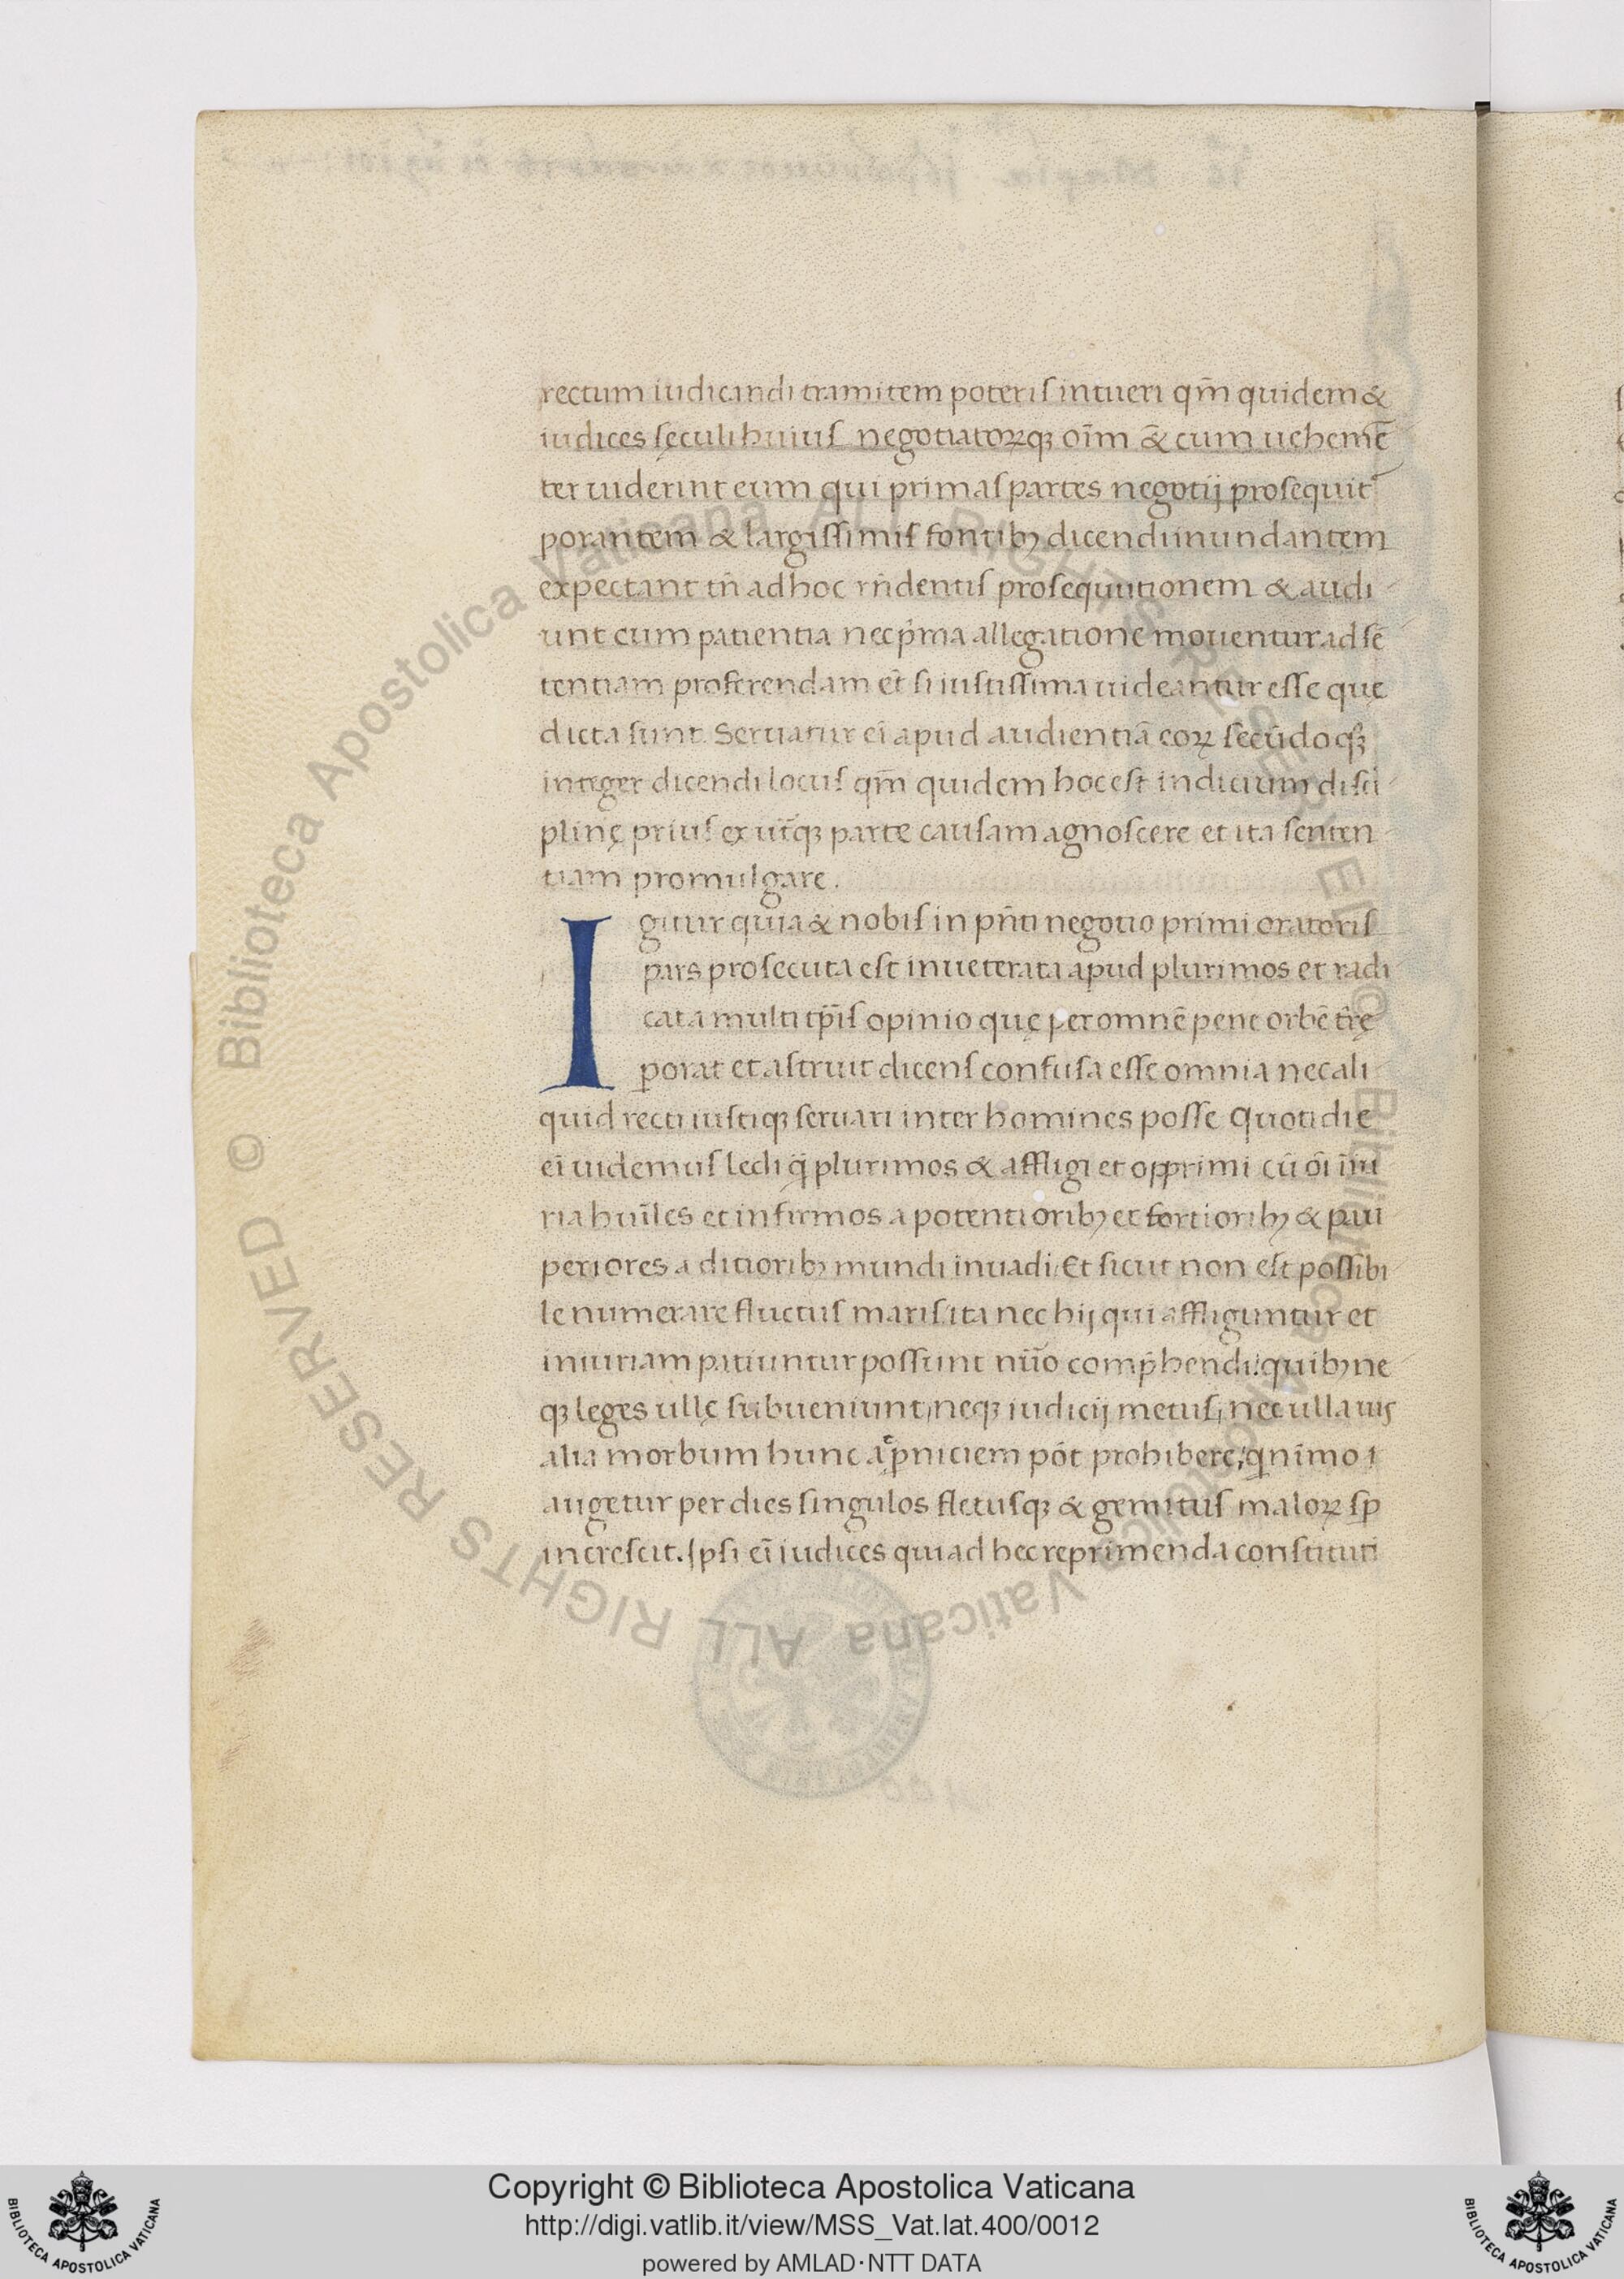 rectum iudicandi tramitem poteris intueri qm̄ quidem &
iudices sęculi huius negotiatoꝝqꝫ oīm & cum uehemē
ter uiderint eum qui primas partes negotij prosequit᷑
ꝑorantem & largissimis fontibꝫ dicendi inundantem
expectant tn̄ ad hoc rn̄dentis prosequutionem & audi
unt cum patientia nec p̄ma allegatione mouentur ad sē
tentiam proferendam et̄ si iustissima uideantur esse quę
dicta sunt. Seruatur eī apud audientiā eoꝝ secūdo qꝫ
integer dicendi locus qm̄ quidem hoc est indicium disci
plinę prius ex ut̄qꝫ parte causam agnoscere et ita senten
tiam promulgare.
Igitur quia & nobis in pn̄ti negotio primi oratoris
pars prosecuta est inueterata apud plurimos et radi
cata multi tp̄is opinio quę per omnē pene orbē tr̄ę
ꝑorat et astruit dicens confusa esse omnia nec ali
quid recti iustiqꝫ seruari inter homines posse Quotidie
eī uidemus ledi q̄ plurimos & affligi et opprimi cū oī iniu
ria huīles et infirmos a potentioribꝫ et fortioribꝫ & pau
periores a ditioribꝫ mundi inuadi. Et sicut non est possibi
le numerare fluctus maris ita nec hij qui affliguntur et
iniuriam patiuntur possunt nūo comp̄hendi: quibꝫ ne
qꝫ leges ullę subueniunt, neqꝫ iudicij metus, nec ulla uis
alia morbum hunc ac ꝑniciem pōt prohibere, qnīmo ī
augetur per dies singulos fletusqꝫ & gemitus maloꝝ sꝑ
increscit. Ipsi eī iudices qui ad hec reprimenda constituti
Biblioteca Apostolica Vaticana ALL RIGHTS RESERVED ©
Biblioteca Apostolica Vaticana ALL RIGHTS RESERVED ©
Copyright © Biblioteca Apostolica Vaticana
http://digi.vatlib.it/view/MSS_Vat.lat.400/0012
powered by AMLAD·NTT DATA
BIBLIOTECA APOSTOLICA VATICANA
BIBLIOTECA APOSTOLICA VATICANA